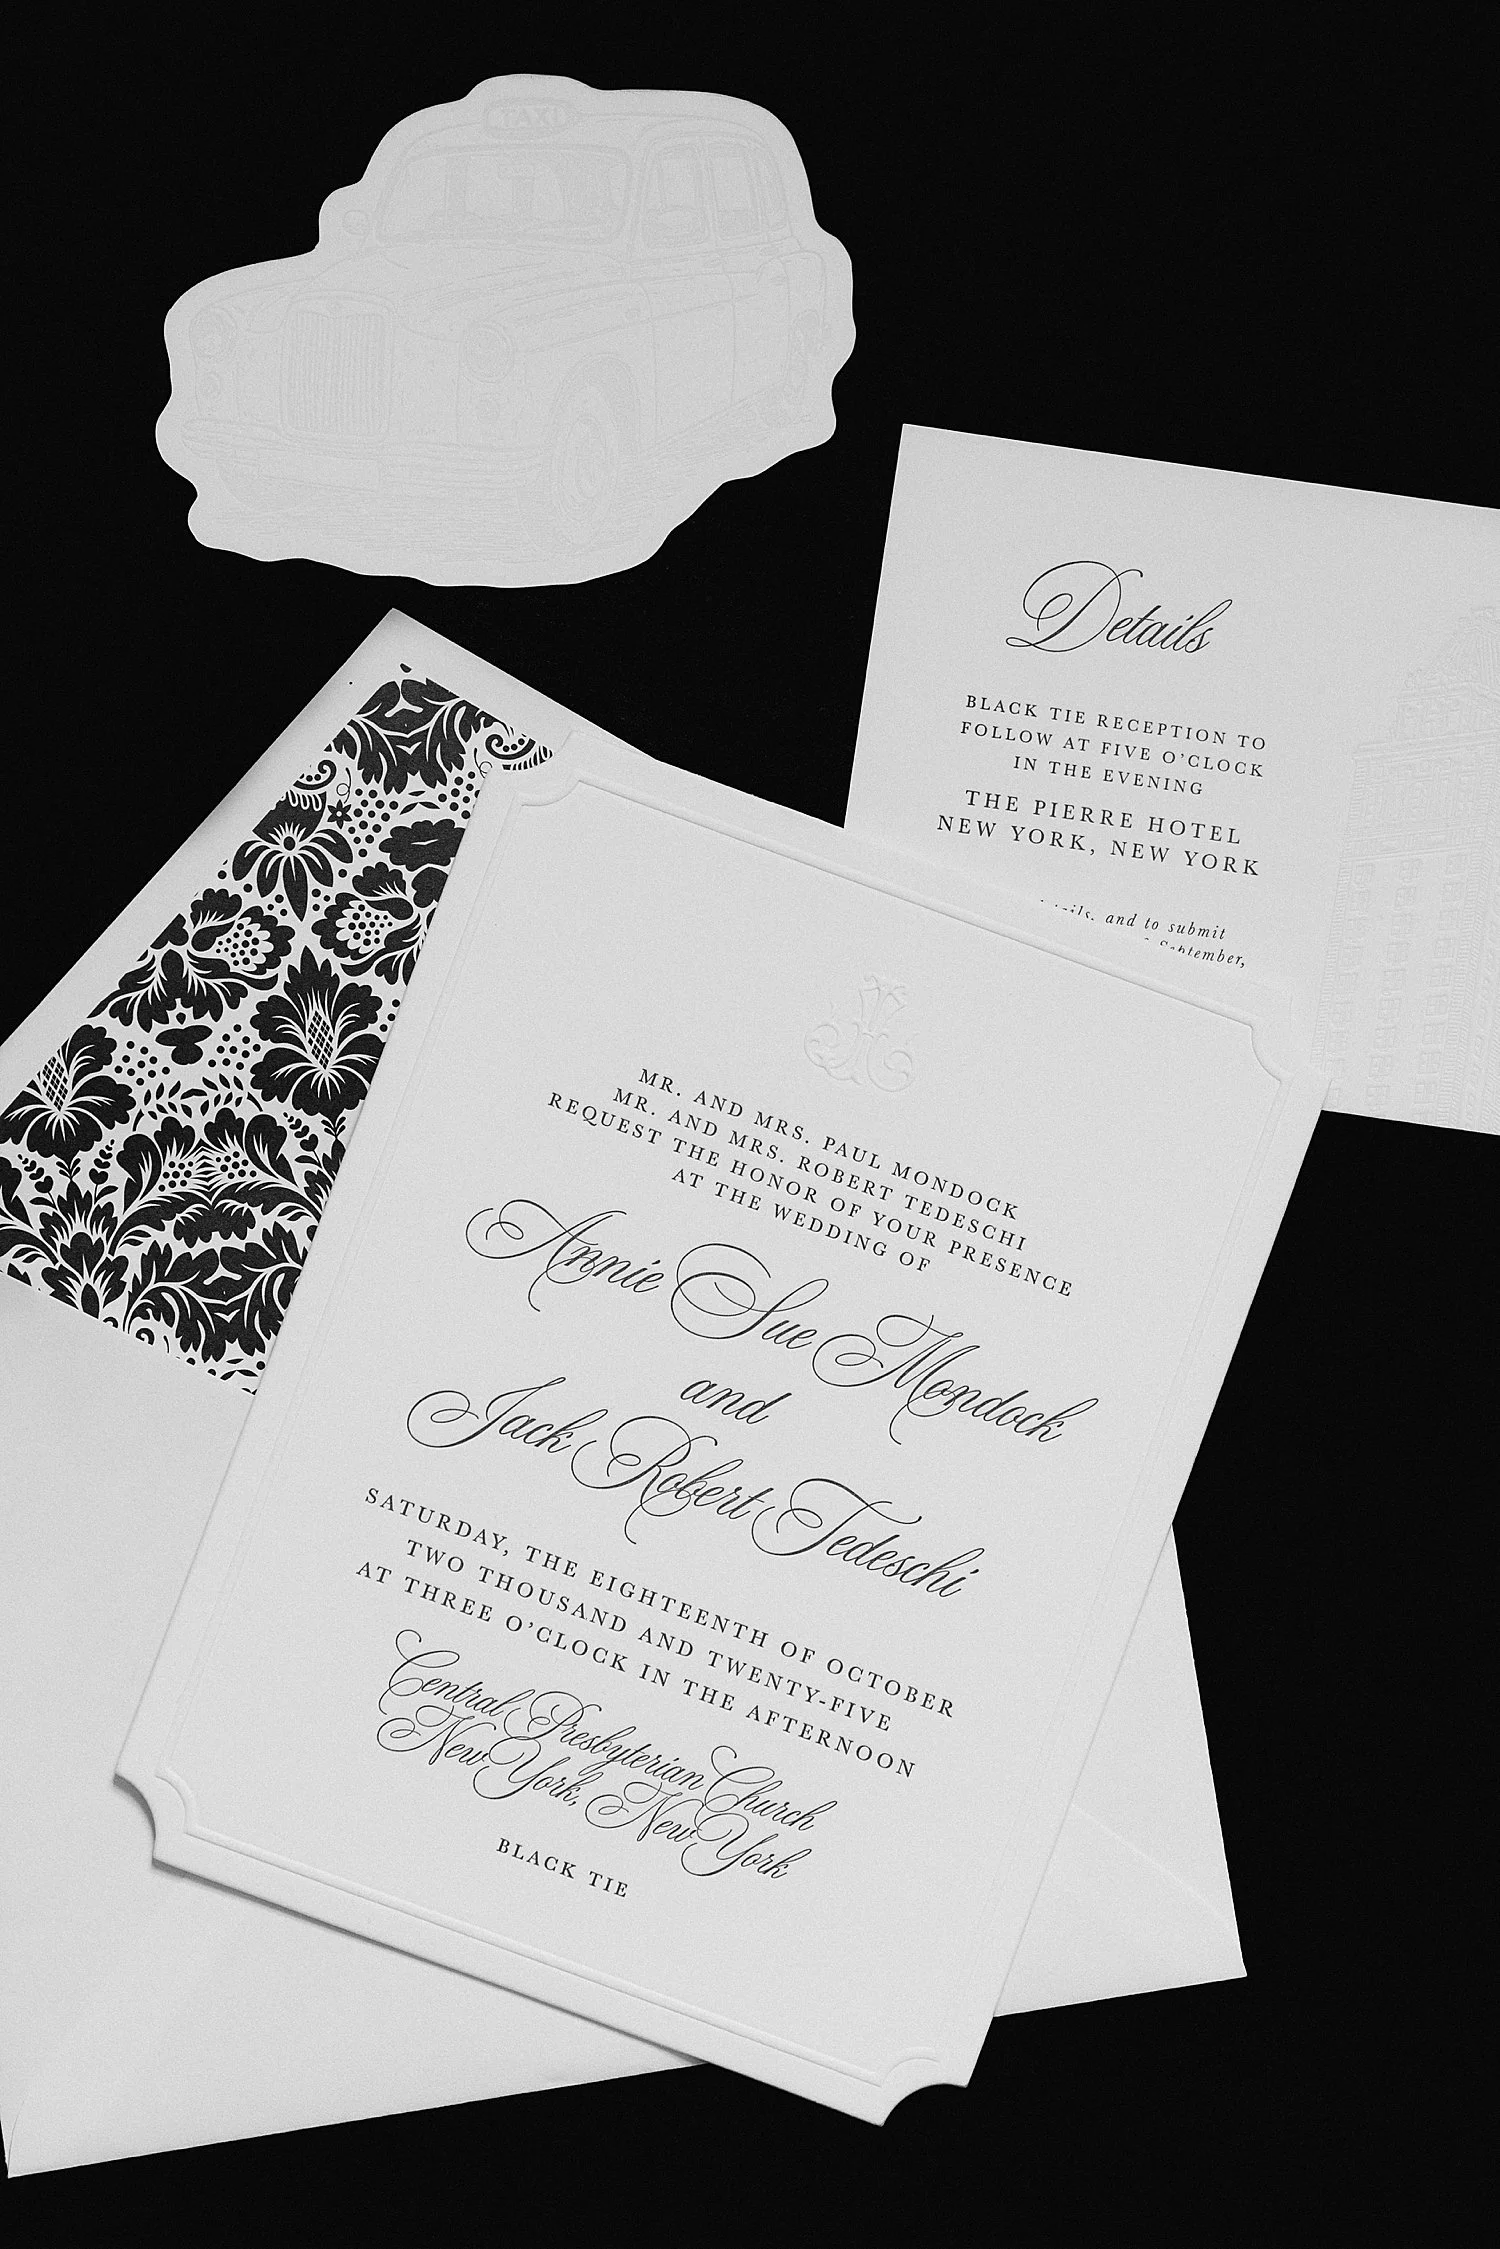 TAXI
Details
BLACK TIE RECEPTION TO
FOLLOW AT FIVE O'CLOCK
IN THE EVENING
THE PIERRE HOTEL
NEW YORK, NEW YORK
and to submit
September,
MR. AND MRS. PAUL MONDOCK
MR. AND MRS. ROBERT TEDESCHI
REQUEST THE HONOR OF YOUR PRESENCE
AT THE WEDDING OF
Annie Sue Mondock
and
Jack Robert Tedeschi
SATURDAY, THE EIGHTEENTH OF OCTOBER
TWO THOUSAND AND TWENTY-FIVE
AT THREE O'CLOCK IN THE AFTERNOON
Central Presbyterian Church
New York, New York
BLACK TIE